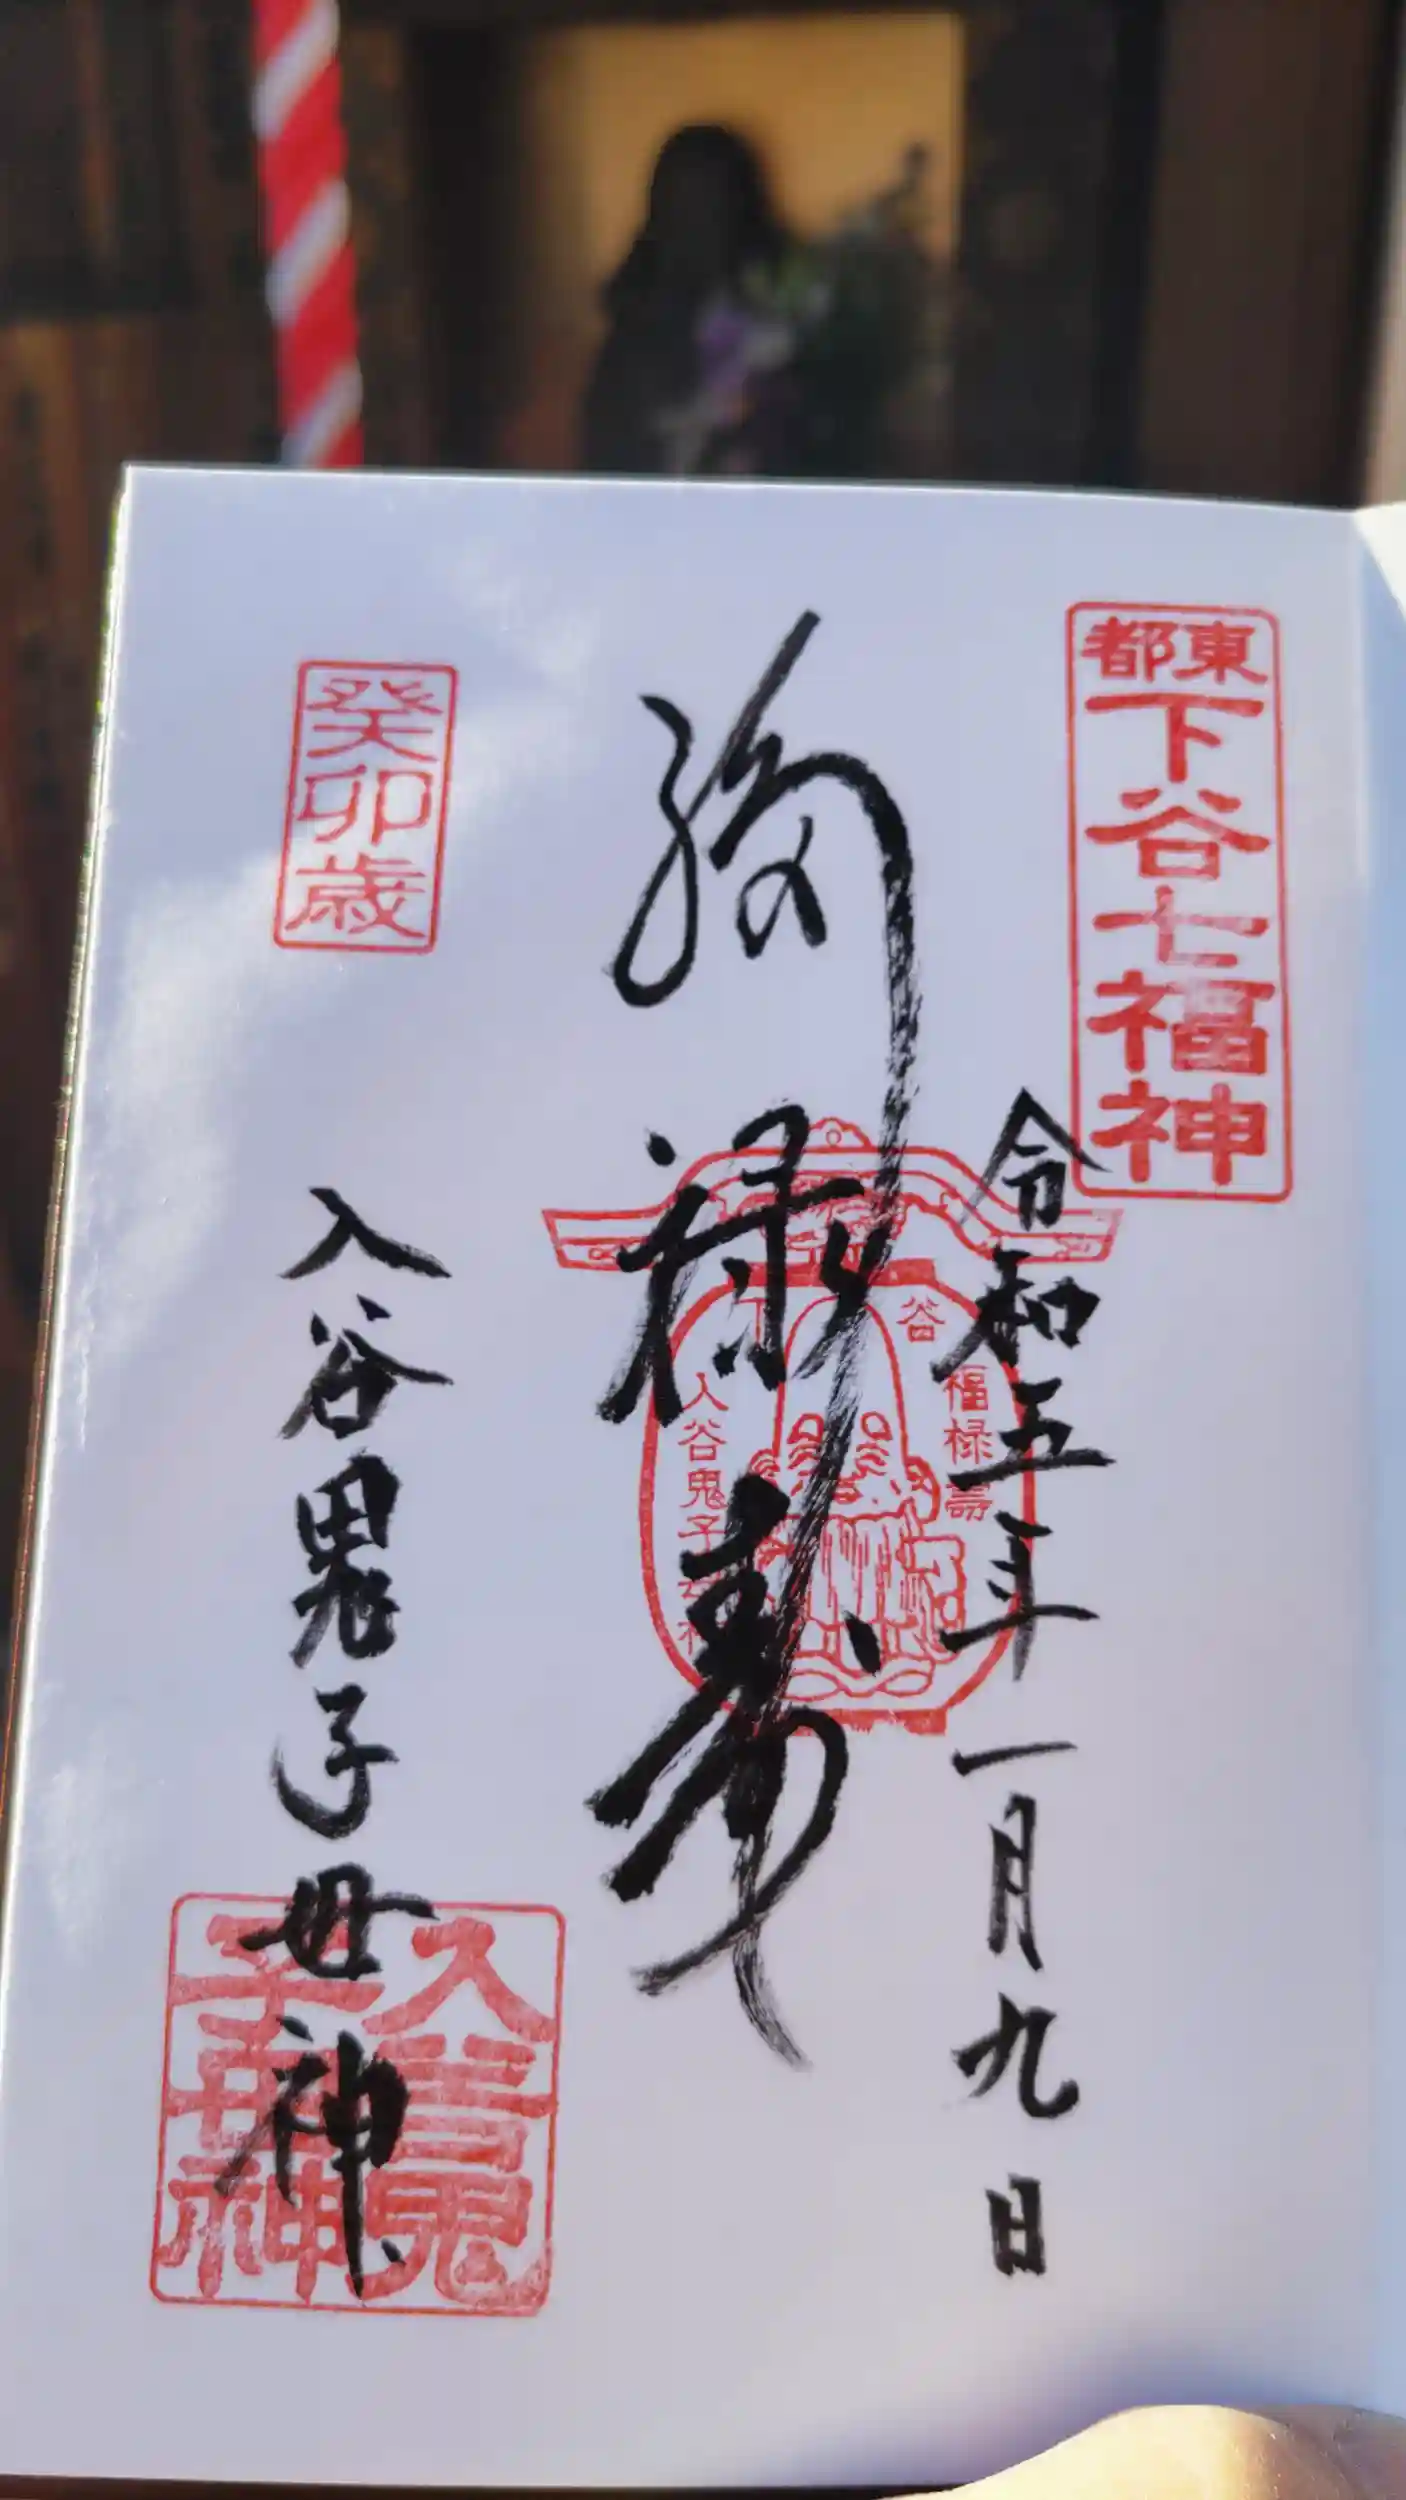 東都
下谷七福神
令和五年一月九日
福禄寿
谷
福禄壽
入谷鬼子母神
癸卯歳
入谷鬼子母神
入谷鬼
子母神